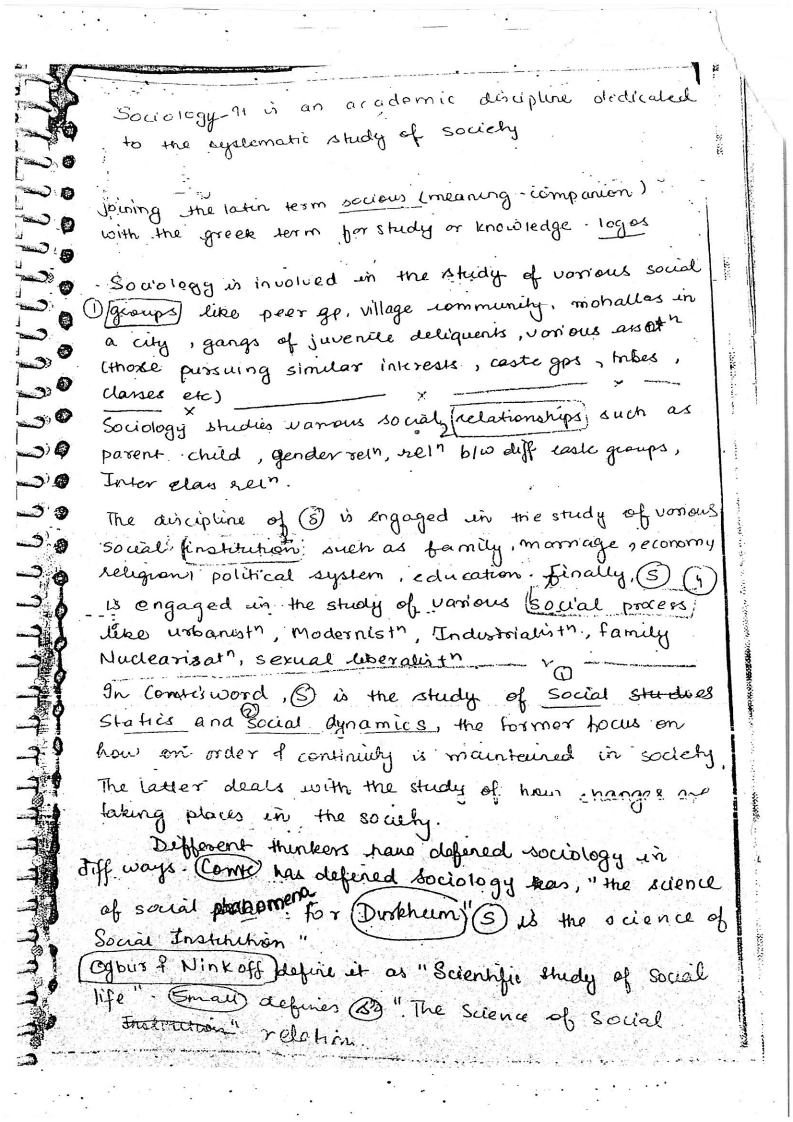 Sociology - It is an academic discipline dedicated
to the systematic study of society
joining the latin term socious (meaning - companion)
with the greek term for study or knowledge - logos
- Sociology is involved in the study of various social
① groups like peer gp, village community, mohallas in
a city, gangs of juvenile deliquents, various assotn
(those pursuing similar interests, caste gps, tribes,
classes etc)
Sociology studies various social 2 relationships such as
parent child, gender reln, reln b/w diff caste groups,
Inter class reln.
The discipline of Ⓢ is engaged in the study of various
social institution such as family, marriage, economy
religion, political system, education. Finally, Ⓢ ④
is engaged in the study of various social process
like urbanistn, Modernistn, Industrialistn, family
Nuclearisatn, sexual liberalistn
In Comte's word, Ⓢ is the study of ① Social studies
Statics and ② Social dynamics, the former focus on
how an order & continuity is maintained in society.
The latter deals with the study of how changes are
taking places in the society.
Different thinkers have defined sociology in
diff ways. Comte has defined sociology as, "the science
of social phanomena. for Durkheim" Ⓢ is the science of
Social Institution"
Ogbur & Ninkoff define it as "Scientific study of social
life". Small defines Ⓢ "The Science of Social
Institution" relation.